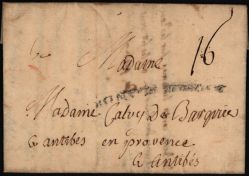 Madame
16
Madame Calvy de
a antibes en provence
a antibes